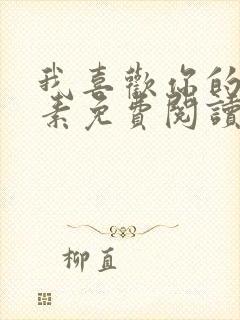 我喜歡你的
素免費閱讀
柳直